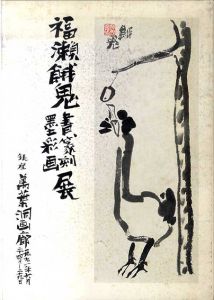 福瀬餓鬼
書篆刻
墨彩画
展
銀座 萬葉洞画廊